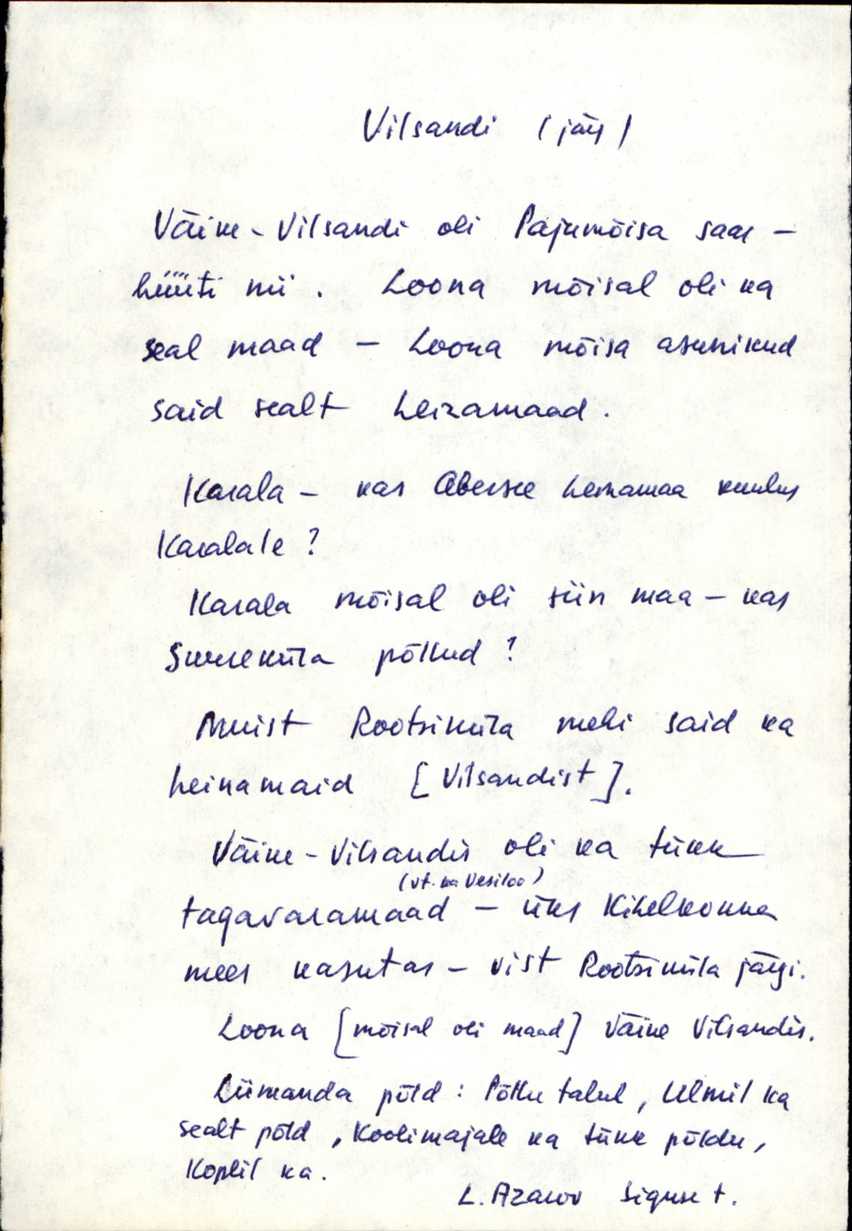 Vilsandi (järg)
Väike-Vilsandi oli Pajumõisa saar –
hüüti nii. Loona mõisal oli ka
seal maad – Loona mõisa asunikud
said sealt heinamaad.
Karala – kas Abersee heinamaa kuulus
Karalale?
Karala mõisal oli siin maa – kas
Suureküla põllud?
Muist Rootsiküla mehi said ka
heinamaid [Vilsandist].
Väike-Vilsandis oli ka tükk
(vt. ka Vesiloo)
tagavaramaad – üks Kihelkonna
mees kasutas – vist Rootsiküla järgi.
Loona [mõisal oli maad] Väike Vilsandis.
Liimanda põld: Põllu talul, Ulmil ka
sealt põld, Koolimajale ka tükk põldu,
Koplil ka.
L. Azarov